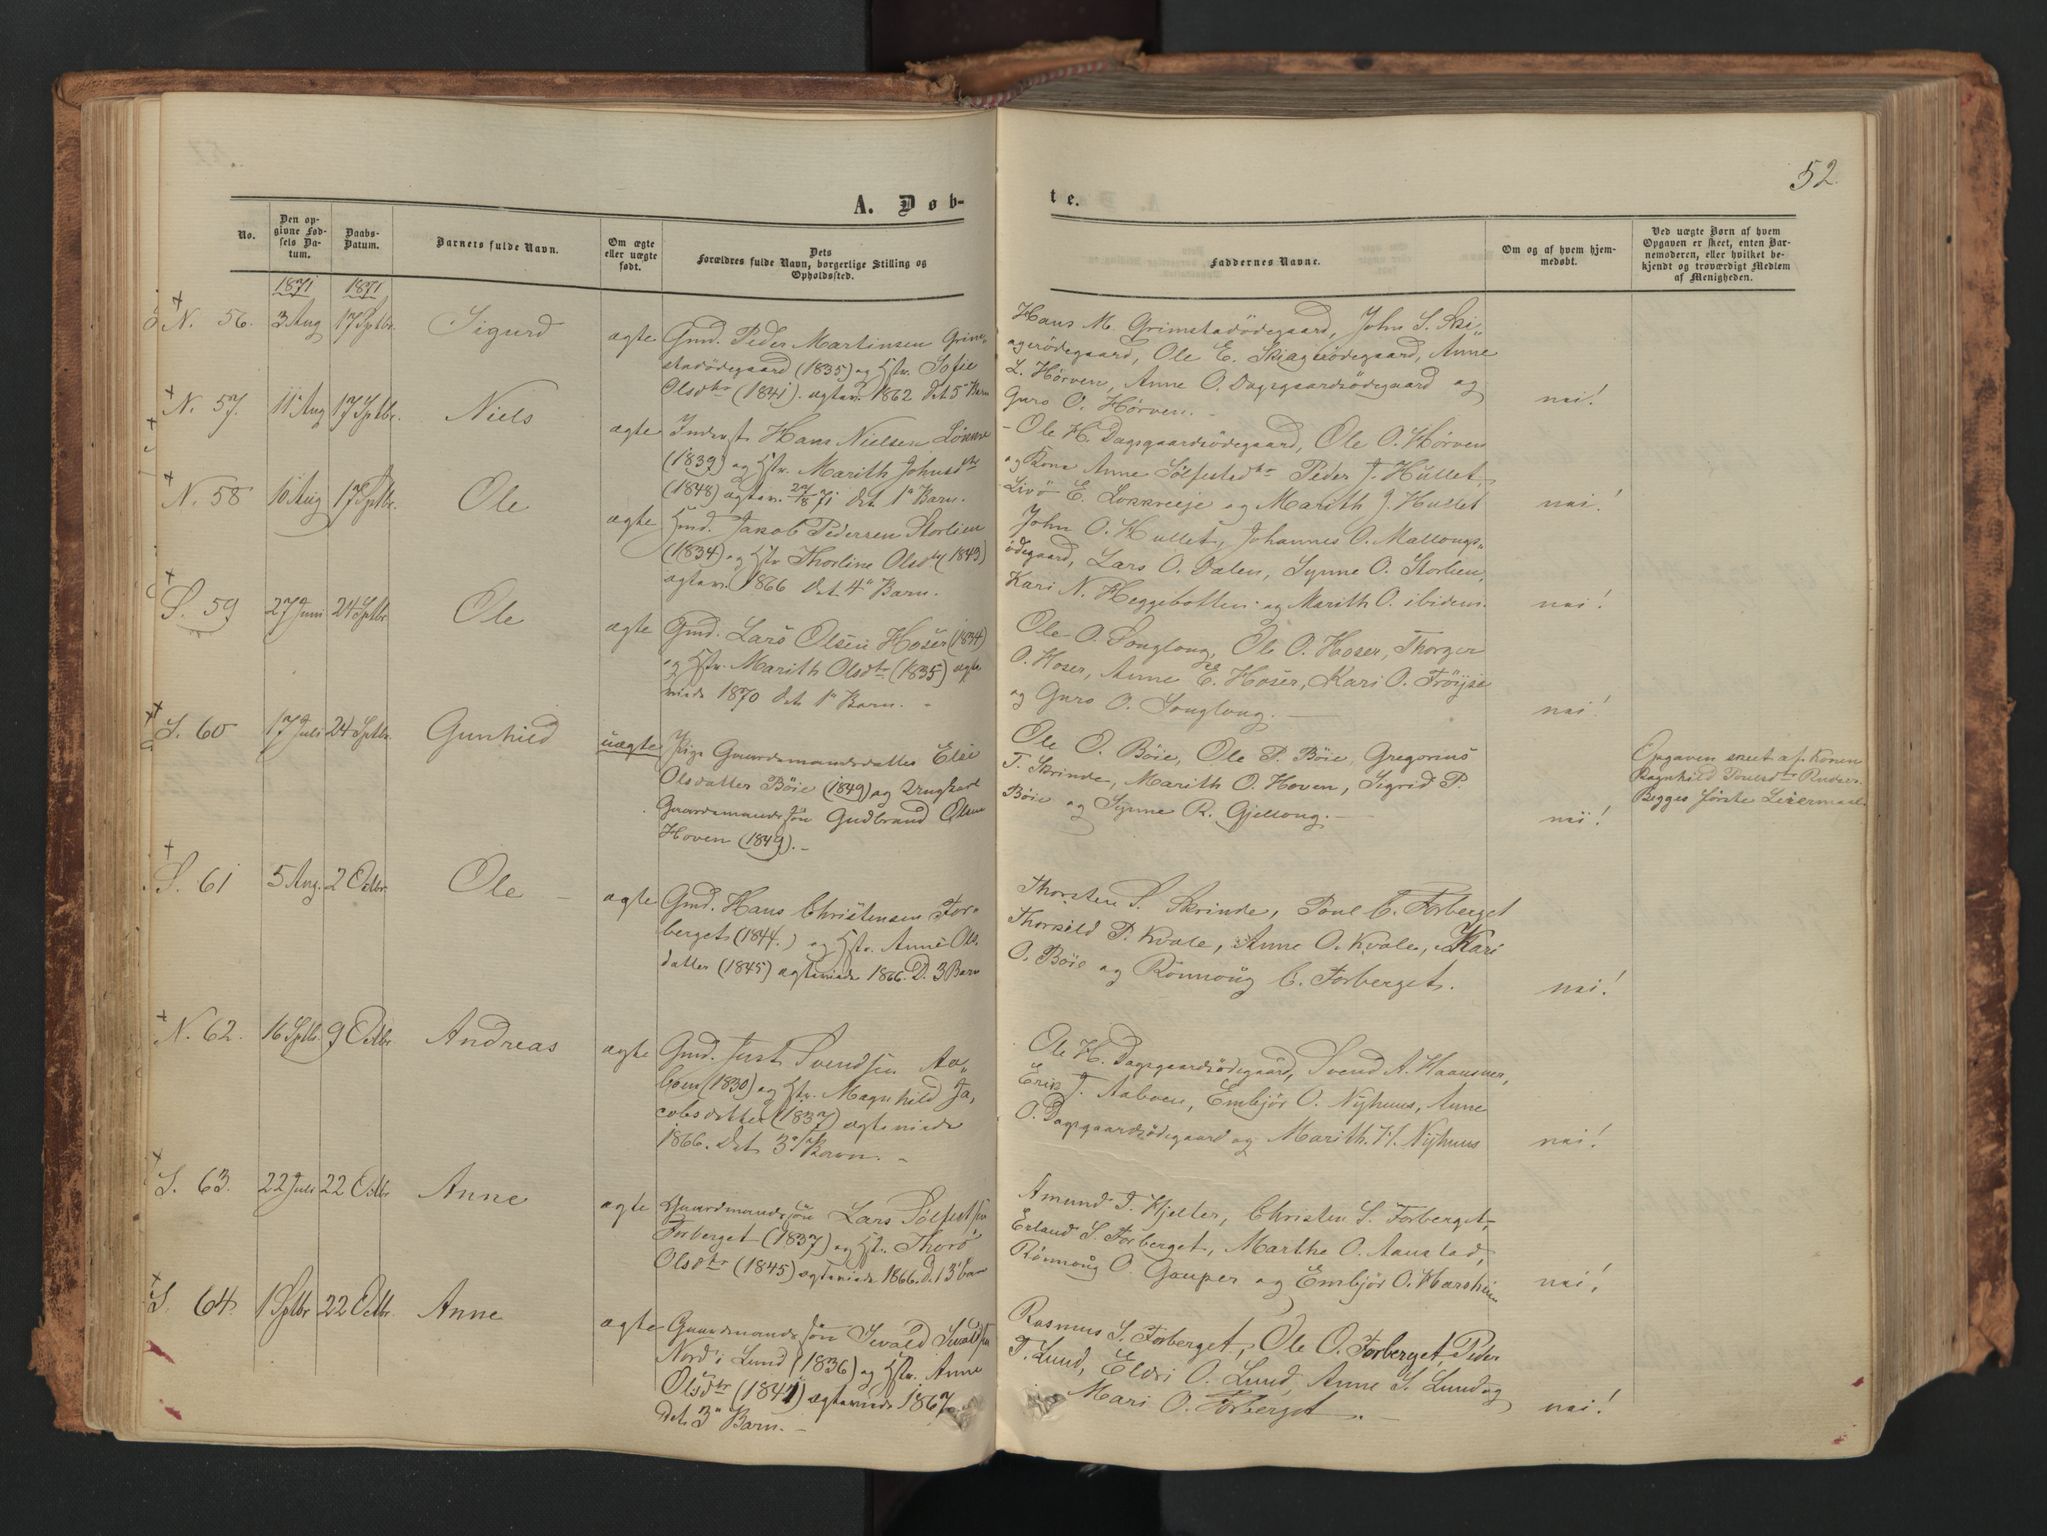 52.
A. Døb-
te.
No.
Den op-
givne Fød-
sels Da-
tum.
Daabs-
Datum.
Barnets fulde Navn.
Om ægte
eller uægte
født.
Dets
Forældres fulde Navn, borgerlige Stilling og
Opholdssted.
Faddernes Navne.
Om og af hvem hjem-
medøbt.
Ved uægte Børn af hvem
Opgaven er skeet, enten Bar-
nemoderen, eller hvilket be-
kjendt og troværdigt Medlem
af Menigheden.
1871 1871
N. 56. 3 Aug 17 Sptbr. Sigurd
ægte Gmd. Peder Martinsen Grim-
stadödegaard (1835) og Hstr. Sofie
Olsdtr (1841). ægtev. 1862 Det 5" Barn
Hans M. Grimstadödegaard, John S. Ski-
agerödegaard, Ole E. Skiagerödegaard, Anne
L. Hörven, Anne O. Dagsgaardsödegaard og
Guro O. Hörven. -
nei!
N. 57. 11 Aug 17 Sptbr. Niels
ægte Inderst Hans Nielsen
(1839) og Hstr. Marith Johnsdtr
(1848) ægtev. 27/8 71 Det 1" Barn.
- Ole H. Dagsgaardsödegaard, Ole O. Hörven
og Kone Anne Sölfestsdtr Peder J. Hullet,
Livö E. Lokkreeje og Marith J. Hullet
nei!
N. 58 10 Aug 17 Sptbr. Ole
ægte Gmd. Jakob Pedersen Storlien
(1834) og Hstr Thorline Olsdtr (1843)
ægtev. 1866 Det 4" Barn.
John O. Hullet, Johannes O. Mallongs-
ödegaard, Lars O. Dalen, Synne O. Storlien,
Kari N. Heggebotten og Marith O. ibidem.
nei!
S. 59 27 Juni 24 Sptbr Ole
ægte Gmd. Lars Olsen Hoser (1834)
og Hstr. Marith Olsdtr (1835) ægte
viede 1870 Det 1" Barn. -
Ole O. Songlong, Ole O. Hoser, Thorger
O. Hoser, Anne E. Hoser, Kari O. Fröijse
og Guro O. Songlong. -
nei!
S. 60 17 Juli 24 Sptbr. Gunhild
uægte Pige Gaardmandsdatter Else
Olsdatter Böie (1849) og Ungkarl
Gaardmandssön Gudbrand Olsen
Hoven (1849). -
Ole O. Böie, Ole P. Böie, Gregorius
T. Skrinde, Marith O. Hoven, Sigrid P.
Böie og Synne R. Gjellong. -
nei!
Opgaven skeet af Konen
Ragnhild Poulsdtr
Begges förste Leiermaal.
S. 61 5 Aug. 2 Octbr Ole -
ægte Gmd. Hans Christensen For-
berget (1844.) og Hstr. Anne Ols-
datter (1845) ægteviede 1866. D. 3 Barn
Thorsten S. Skrinde, Poul C. Forberget
Thorkild P. Kvale, Anne O. Kvale, Kari
O. Böie og Rönnoug C. Forberget.
nei!
N. 62. 16 Sptbr. 9 Octbr Andreas
ægte Gmd. Just Svendsen Aa-
boen (1830) og Hstr. Magnhild Ja-
cobsdatter (1837) ægteviede
1866. Det 3die Barn. -
Ole H. Dagsgaardsödegaard, Svend A. Haausner,
Erik J. Aaboen, Embjör O. Nyhuus, Anne
O. Dagsgaardsödegaard og Marith H. Nyhuus
nei!
S. 63. 22 Juli 22 Octbr Anne
ægte Gaardmandssön Lars Sölfestsen
Forberget (1837) og Hstr. Thorö
Olsdtr (1845) ægteviede 1866. D. 3' barn
Amund T. Hjelter, Christen S. Forberget,
Erland S. Forberget, Marthe O. Aanstad,
Rönnoug O. Gauper og Embjör O. Harsheim
nei!
S. 64. 1 Sptbr 22 Octbr. Anne
ægte Gaardmandssön Iwald Iwaldsen
Nord i Lund (1836) og Hstr. Anne
Olsdtr (1841) ægteviede 1867.
Det 3" Barn. -
Rasmus S. Forberget, Ole O. Forberget, Peder
T. Lund, Eldri O. Lund, Anne S. Lund og
Mari O. Forberget. -
nei!